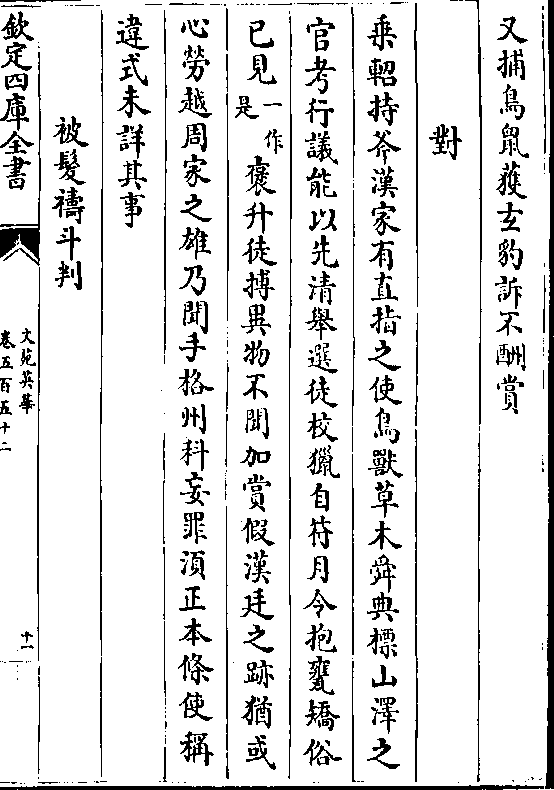 又捕鳥鼠獲玄豹訴不酬賞
對
乗軺持斧漢家有直指之使鳥獸草木舜典標山澤之
官考行議能以先清舉選徒校獵自符月令抱甕矯俗
已見一作是褒升徒搏異物不聞加賞假漢廷之跡猶或
心勞越周家之雄乃聞手格州科妄罪湏正本條使稱
違式未詳其事
被髮禱斗判
欽定四庫全書
文苑英華
卷五百五十二
十一